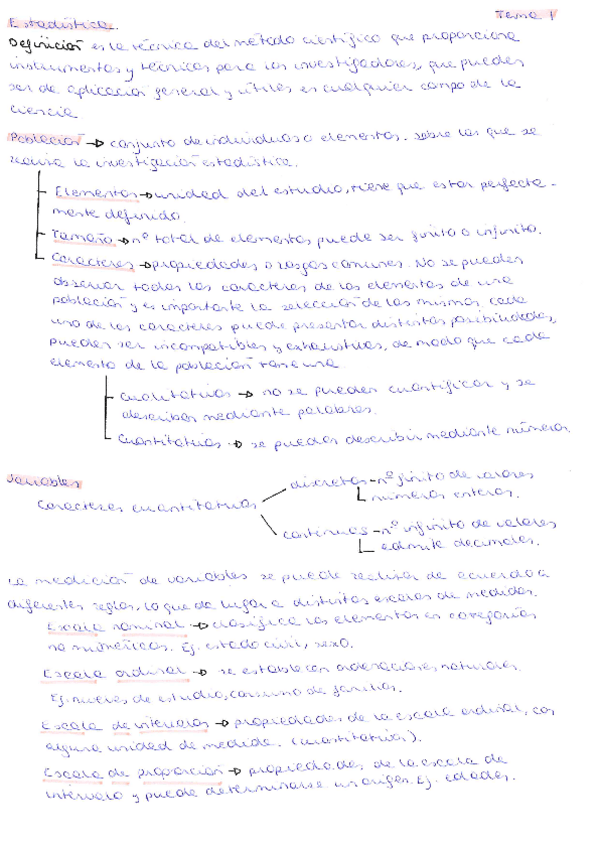 Tema 1
Estadística.
Definición es la técnica del método científico que proporciona
instrumentos y técnicas para los investigadores, que pueden
ser de aplicación general y útiles en cualquier campo de la
ciencia
Población → conjunto de individuos o elementos. Sobre los que se
realiza la investigación estadística.
Elementos → unidad del estudio, tiene que estar perfecta-
mente definido.
Tamaño → nº total de elementos puede ser finito o infinito.
Caracteres → propiedades o rasgos comunes. No se pueden
observar todos los caracteres de los elementos de una
población y es importante la selección de los mismos cada
uno de los caracteres puede presentar distintas posibilidades,
pueden ser incompatibles y exhaustivas, de modo que cada
elemento de la población tome una
cualitativos → no se pueden cuantificar y se
describen mediante palabras.
Cuantitativos → se pueden describir mediante números.
Variables
Caracteres cuantitativos
discretas - nº finito de valores
números enteros.
continuas - nº infinito de valores
admite decimales.
La medición de variables se puede realizar de acuerdo a
diferentes reglas, lo que da lugar a distintas escalas de medidas.
Escala nominal → clasifica los elementos en categorías
no numéricas. Ej. estado civil, sexo.
Escala ordinal → se establecen ordenaciones naturales.
Ej. niveles de estudio, consumo de
Escala de intervalos → propiedades de la escala ordinal, con
alguna unidad de medida. (cuantitativas).
Escala de proporción → propiedades de la escala de
intervalo y puede determinarse un origen. Ej. edades.